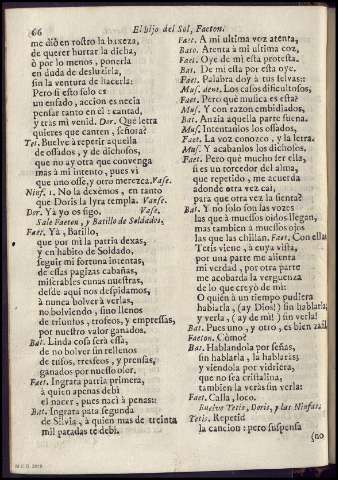 66
El hijo del Sol, Faeton.
me diò en rostro la baxeza,
de querer hurtar la dicha,
ò por lo menos, ponerla
en duda de deslucirla,
sin la ventura de hacerla:
Pero si esto solo es
un enfado, accion es necia
pensar tanto en el: cantad,
y tras mi venid. Dor. Què letra
quieres que canten, señora?
Tet. Buelve à repetir aquella
de ossados, y de dichosos,
que no ay otra que convenga
mas à mi intento, pues vì
que uno osse, y otro merezca. Vase.
Ninf. 1. No la dexèmos, en tanto
que Doris la lyra templa. Vanse.
Dor. Ya yo os sigo. Vase.
Sale Faeton, y Batillo de Soldados.
Faet. Yà, Batillo,
que por mi la patria dexas,
y en habito de Soldado,
seguir mi fortuna intentas,
de essas pagizas cabañas,
miserables cunas nuestras,
desde aqui nos despidamos,
à nunca bolver à verlas,
no bolviendo, sino llenos
de triunfos, trofeos, y empressas,
por nuestro valor ganados.
Bat. Linda cosa serà essa,
de no bolver sin rellenos
de tufos, tresfeos, y prensas,
ganados por nuestro olor.
Faet. Ingrata patria primera,
à quien apenas debì
el nacer, pues nacì à penas::
Bat. Ingrata pata segunda
de Silvia, à quien mas de treinta
mil patadas te debi.
Faet. A mi ultima voz atenta,
Bat. Atenta à mi ultima coz,
Faet. Oye de mi esta protesta.
Bat. De mi essa por esta oye.
Faet. Palabra doy à tus selvas::
Mus. dent. Los casos dificultosos,
Faet. Pero què musica es esta?
Mus. Y con razon embidiados,
Bat. Anzia aquella parte suena.
Mus. Intentanlos los ossados,
Faet. La voz conozco, y la letra.
Mus. Y acabanlos los dichosos.
Faet. Pero què mucho ser ella,
si es un torcedor del alma,
que repetido, me acuerda
adonde otra vez caì,
para que otra vez la sienta?
Bat. Y no solo son las voces
las que à muessos oidos llegan,
mas tambien à muessos ojos
las que las chillan. Faet. Con ellas
Tetis viene, à cuya vista,
por una parte me alienta
mi verdad, por otra parte
me acobarda la verguenza
de lo que creyò de mì:
O quièn à un tiempo pudiera
hablarla, (ay Dios!) sin hablarla;
y verla, (ay de mi!) sin verla!
Bat. Pues uno, y otro, es bien facil
Faeton. Còmo?
Bat. Hablandola por señas,
sin hablarla, la hablaràs;
y viendola por vidriera,
que no sea cristalina,
tambien la veràs sin verla:
Faet. Calla, loco.
Buelve Tetis, Doris, y las Ninfas.
Tetis. Repetid
la cancion: pero suspensa
no